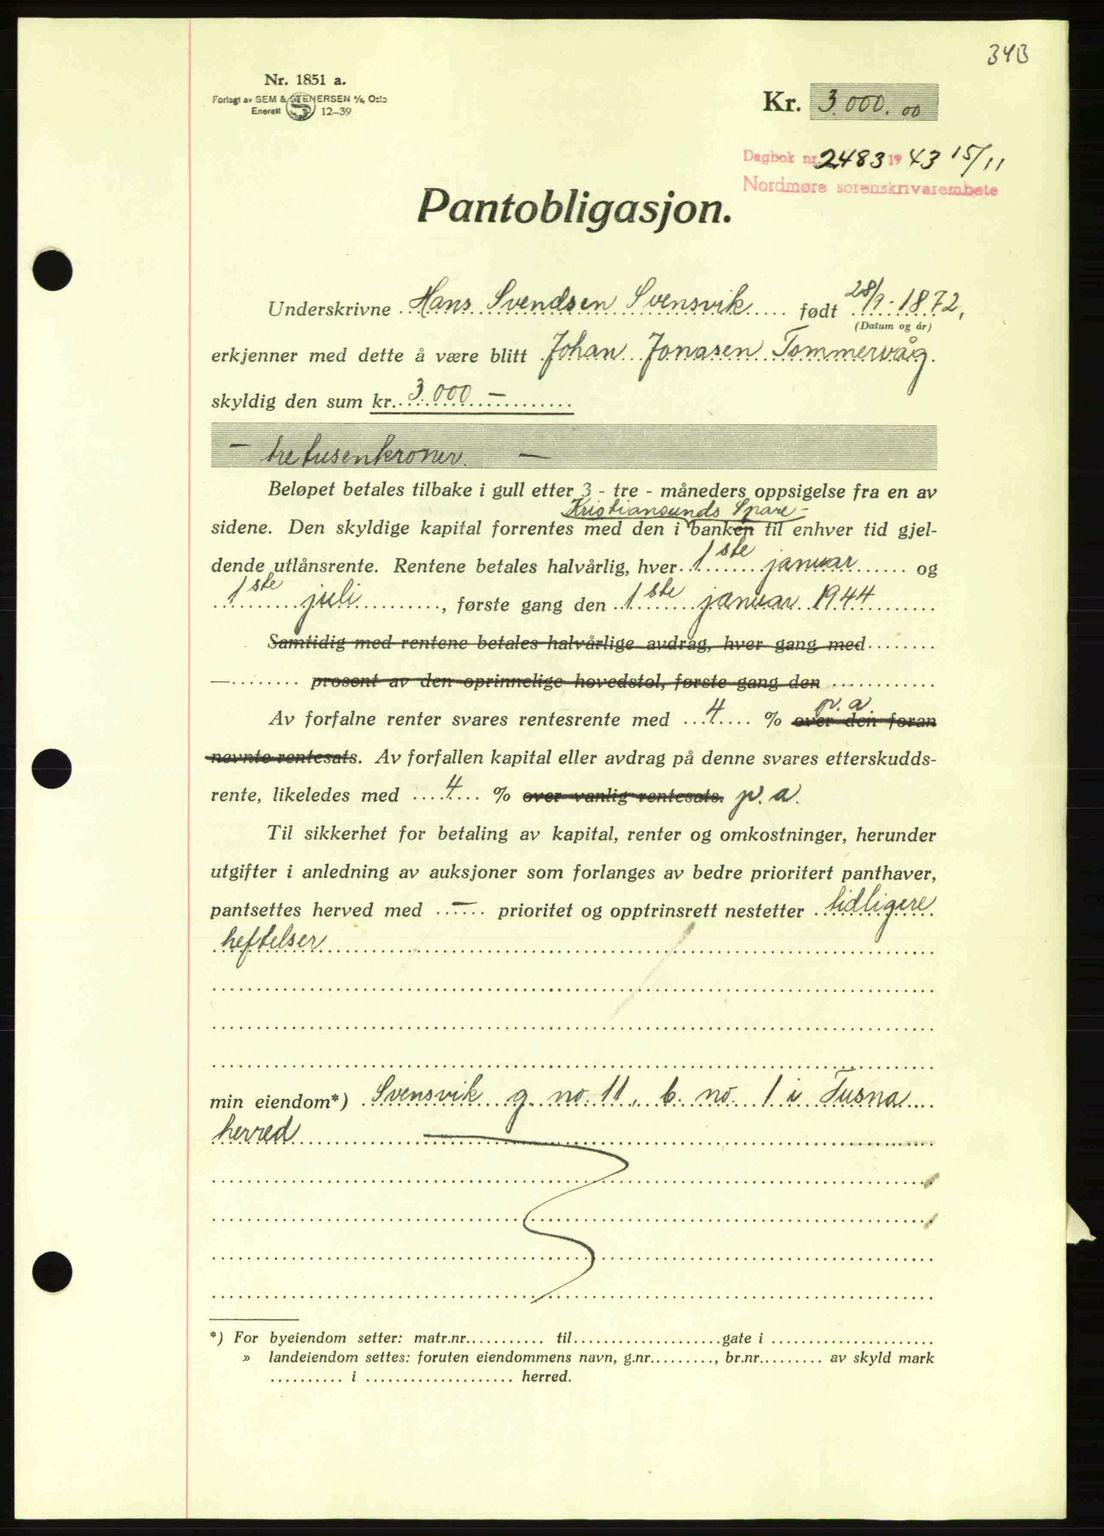 343
Nr. 1851 a.
Forlagt av SEM & STENERSEN A/S, Oslo
Enerett 12—39
Kr. 3.000.00
Dagbok nr. 2483 1943 15/11
Nordmøre sorenskrivarembete
Pantobligasjon.
Underskrivne Hans Svendsen Svensvik født 28/9-1872,
(Datum og år)
erkjenner med dette å være blitt Johan Jonasen Tømmervåg.
skyldig den sum kr. 3.000 —
— tretusenkroner. —
Beløpet betales tilbake i gull etter 3 - tre - måneders oppsigelse fra en av
Kristiansunds Spare-
sidene. Den skyldige kapital forrentes med den i banken til enhver tid gjel-
dende utlånsrente. Rentene betales halvårlig, hver 1ste januar og
1ste juli, første gang den 1ste januar 1944
Samtidig med rentene betales halvårlige avdrag, hver gang med
— prosent av den oprinnelige hovedstol, første gang den
p. a.
Av forfalne renter svares rentesrente med 4 % over den foran
nevnte rentesats. Av forfallen kapital eller avdrag på denne svares etterskudds-
rente, likeledes med 4 % over vanlig rentesats. p. a.
Til sikkerhet for betaling av kapital, renter og omkostninger, herunder
utgifter i anledning av auksjoner som forlanges av bedre prioritert panthaver,
pantsettes herved med — prioritet og opptrinsrett nestetter tidligere
heftelser
min eiendom*) Svensvik g. no. 11, b. no. 1 i Tusna
herred
*) For byeiendom setter: matr.nr........... til.....................gate i .......................
» landeiendom settes: foruten eiendommens navn, g.nr........., br.nr......... av skyld mark
.......... i ..................... herred.